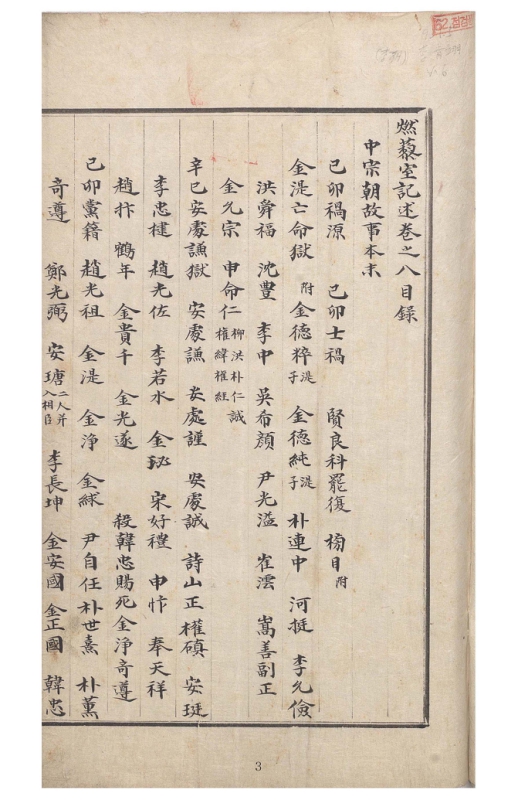 燃藜室記述卷之八目錄
中宗朝故事本末
己卯禍源 己卯士禍 賢良科罷復 榜目附
金湜亡命獄 附金德粹湜子 金德純湜子 朴連中 河挺 李允儉
洪舜福 沈豊 李中 吳希顔 尹光溢 崔澐 嵩善副正
金允宗 申命仁 柳洪朴仁誠權緯權經
辛巳安處謙獄 安處謙 安處謹 安處誠 詩山正 權磌 安珽
李忠楗 趙光佐 李若水 金珌 宋好禮 申忭 奉天祥
趙抃 鶴年 金貴千 金光遂 殺韓忠賜死金淨奇遵
己卯黨籍 趙光祖 金湜 金淨 金絿 尹自任 朴世熹 朴薰
奇遵 鄭光弼 安瑭二人并入相臣 李長坤 金安國 金正國 韓忠
3